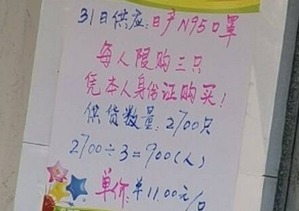 31日供应:日产N95口罩
每人限购三只
凭本人身份证购买!
供货数量:2700只
2700÷3=900(人)
单价:¥11.00元/只